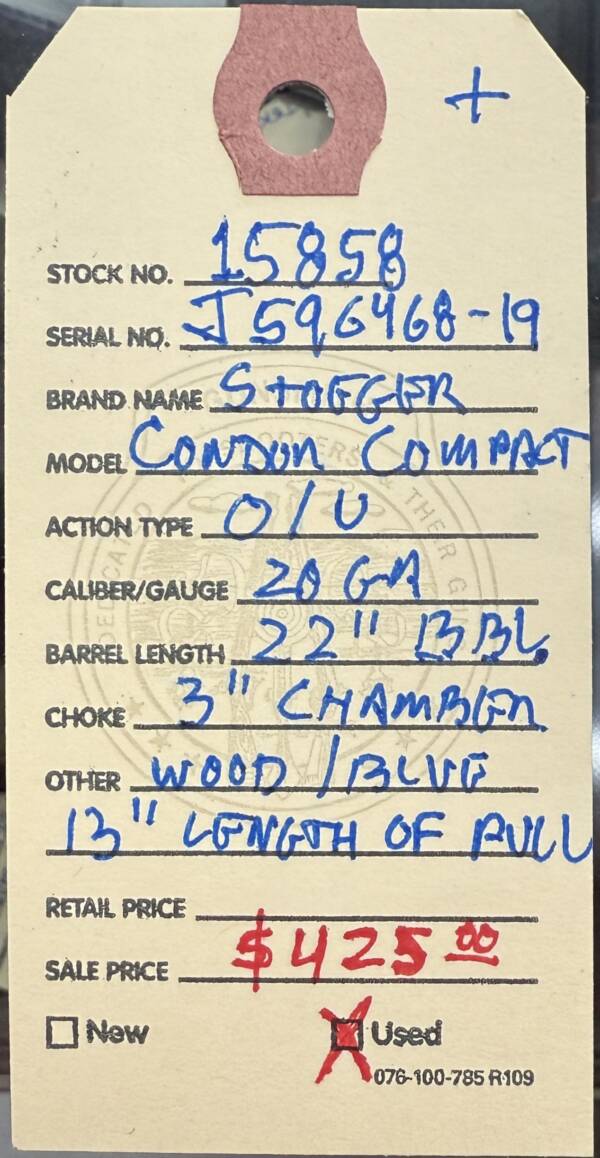 +
STOCK NO. 15858
SERIAL NO. J596468-19
BRAND NAME STOEGER
MODEL CONDOR COMPACT
ACTION TYPE O/U
CALIBER/GAUGE 20 GA
BARREL LENGTH 22" BBL
CHOKE 3" CHAMBER
OTHER WOOD/BLUE
13" LENGTH OF PULL
RETAIL PRICE
SALE PRICE $425.00
New Used
076-100-785 R109